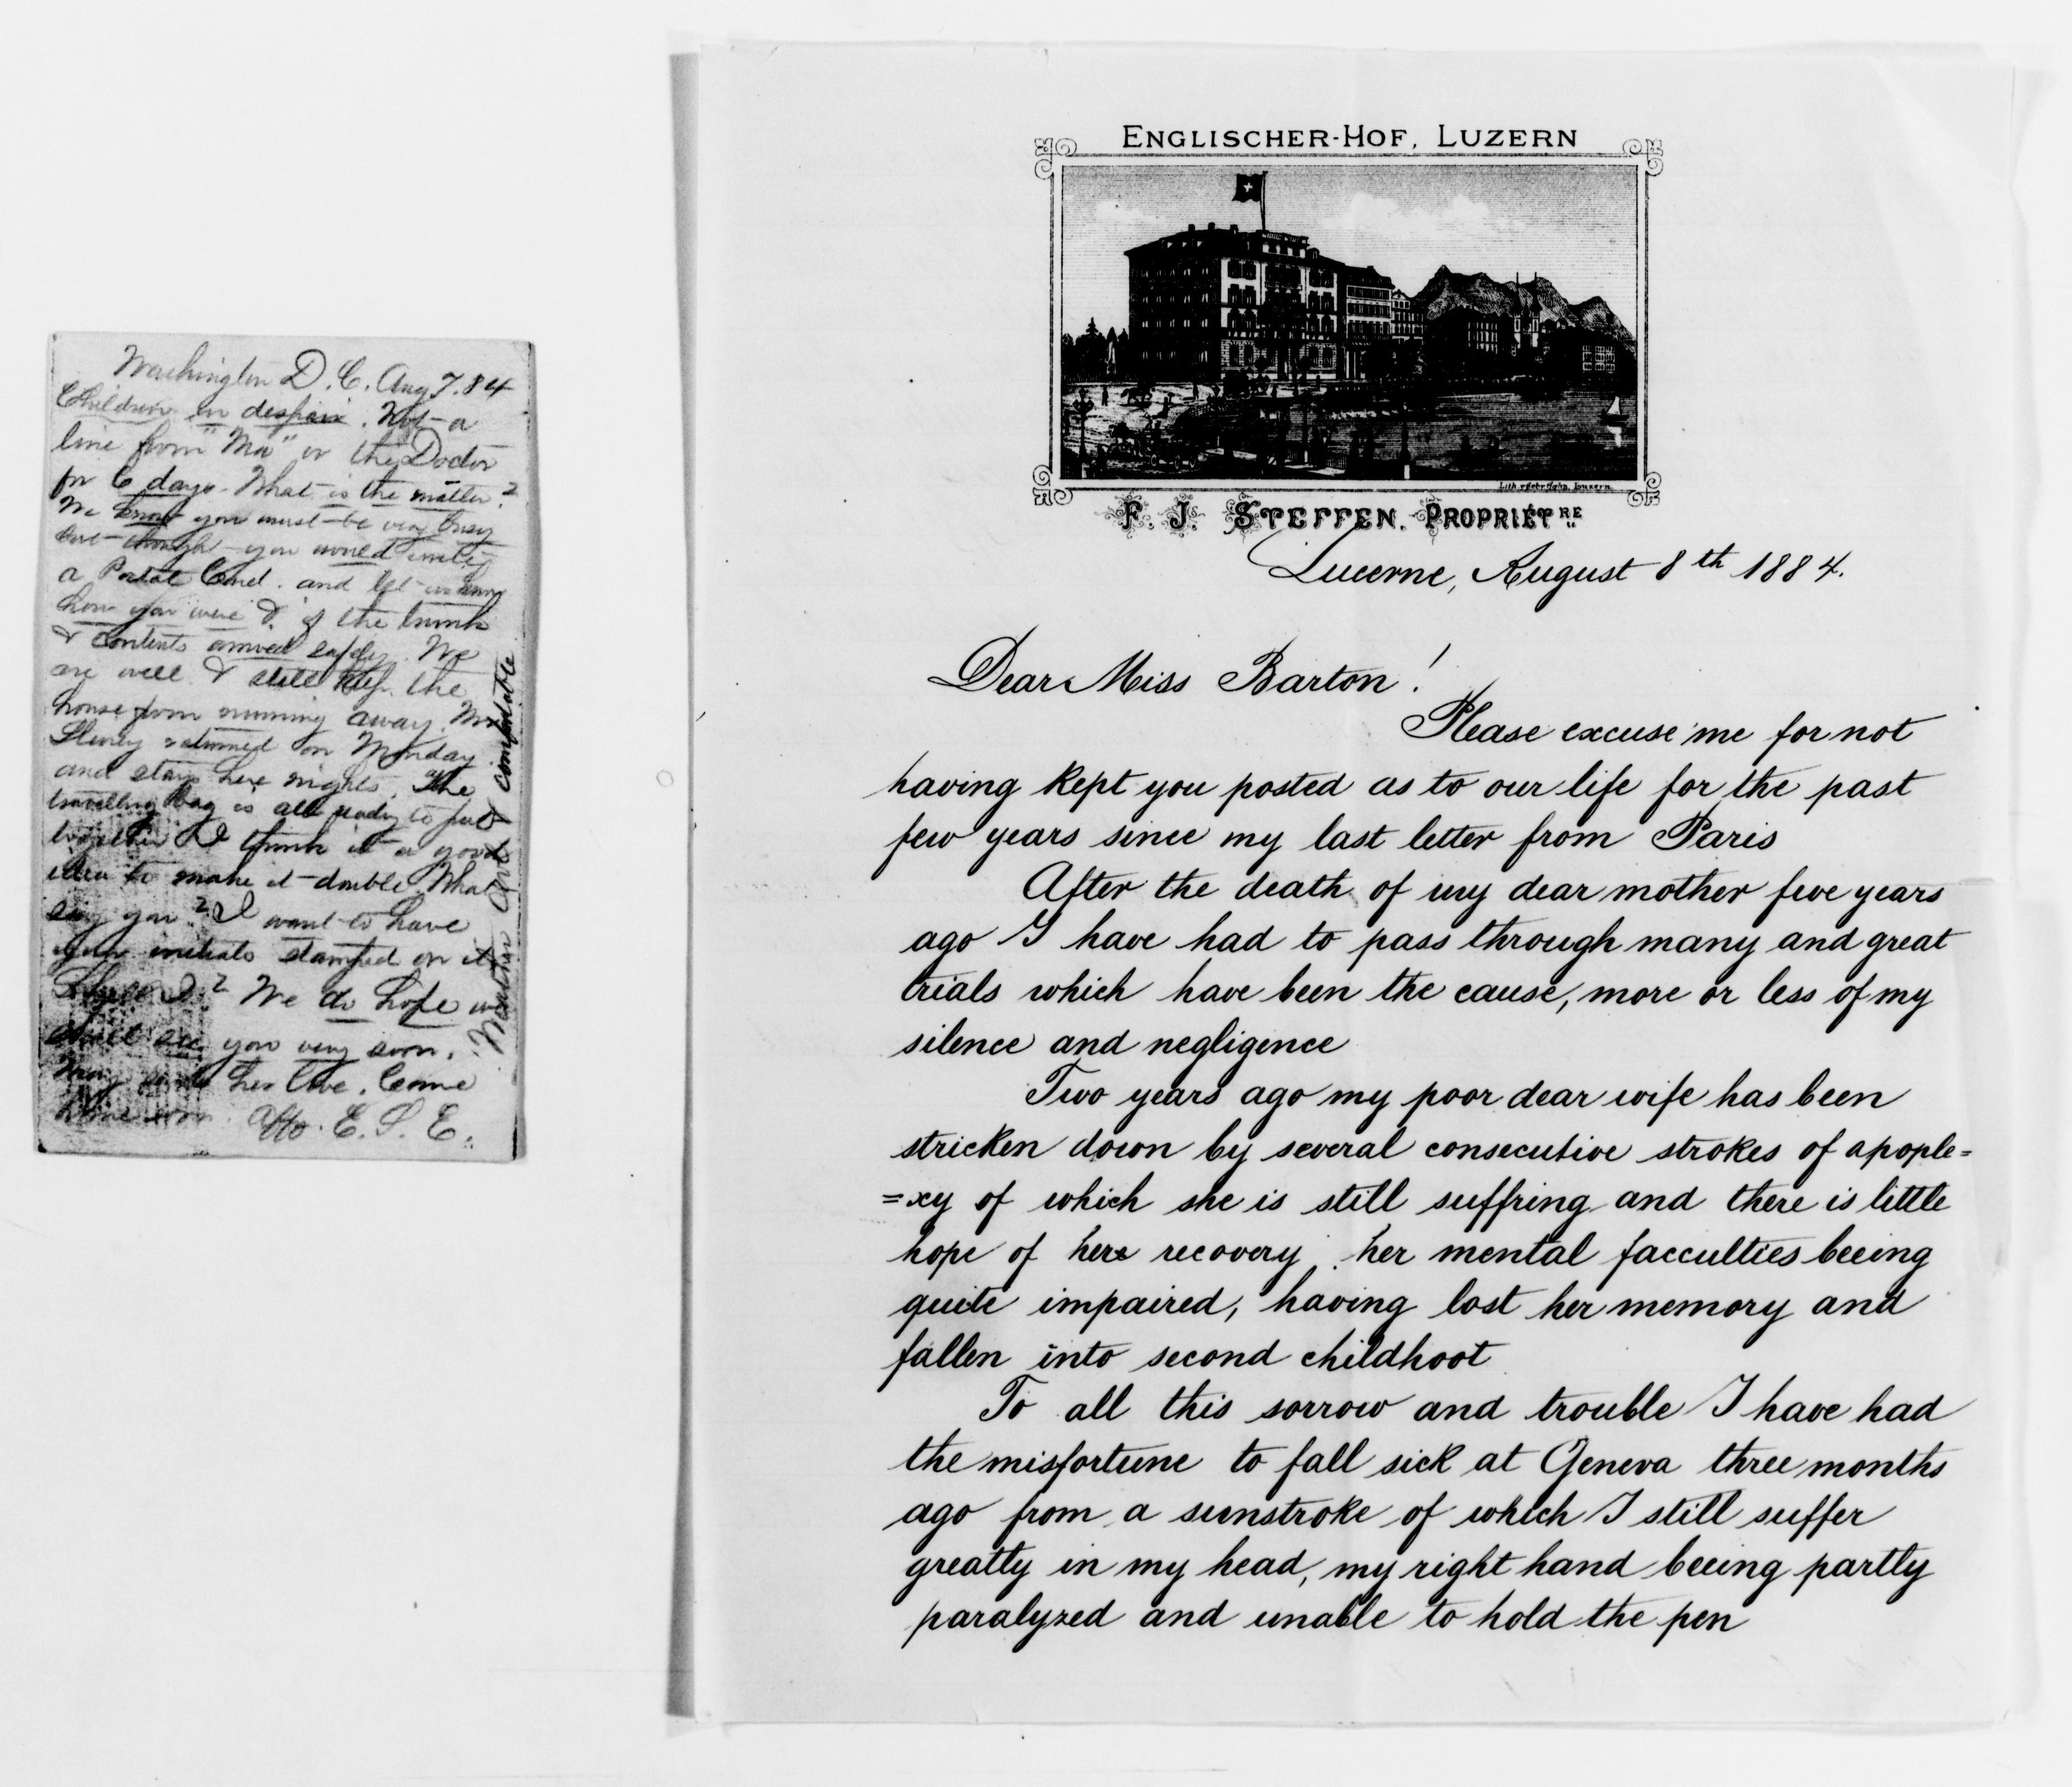 Washington D.C. Aug 7. 84
Children in despair. Not a
line from "Ma" or the Doctor
for 6 days. What is the matter?
We know you must be very busy
but though you would write
a Postal Card. and let us know
how you were & if the trunk
& contents arrived safely. We
are well & still keep the
house from running away. Mr
returned on Monday
and stays here nights. The
travelling bag is all ready to put
together. I think it a good
idea to make it double. What
say you? I want to have
your initials stamped on it
Shall I? We do hope we
shall see you very soon.
sends her love. Come
home soon. Affo. E. S. E.
Weather comfortable
ENGLISCHER-HOF, LUZERN
F. J. STEFFEN. PROPRIÉTRE
Lucerne, August 8th 1884.
Dear Miss Barton!
Please excuse me for not
having kept you posted as to our life for the past
few years since my last letter from Paris
After the death of my dear mother five years
ago I have had to pass through many and great
trials which have been the cause, more or less of my
silence and negligence
Two years ago my poor dear wife has been
stricken down by several consecutive strokes of apople=
=xy of which she is still suffring and there is little
hope of here recovery, her mental facculties beeing
quite impaired, having lost her memory and
fallen into second childhoot
To all this sorrow and trouble I have had
the misfortune to fall sick at Geneva three months
ago from a sunstroke of which I still suffer
greatly in my head, my right hand beeing partly
paralyzed and unable to hold the pen